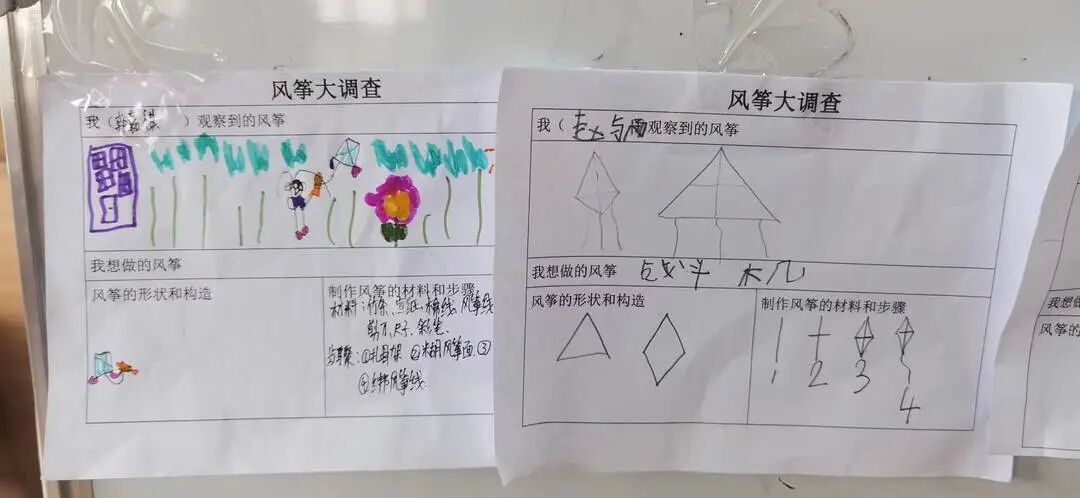 风筝大调查
我（ ）观察到的风筝
我想做的风筝
风筝的形状和构造
制作风筝的材料和步骤
材料：竹条、宣纸、棉线、风筝线
剪刀、尺子、彩笔、
步骤：①扎骨架 ②糊风筝面 ③
④绑风筝线
风筝大调查
我（ 观察到的风筝
我想做的风筝
风筝的形状和构造
制作风筝的材料和步骤
1 2 3 4
我想做
风筝的